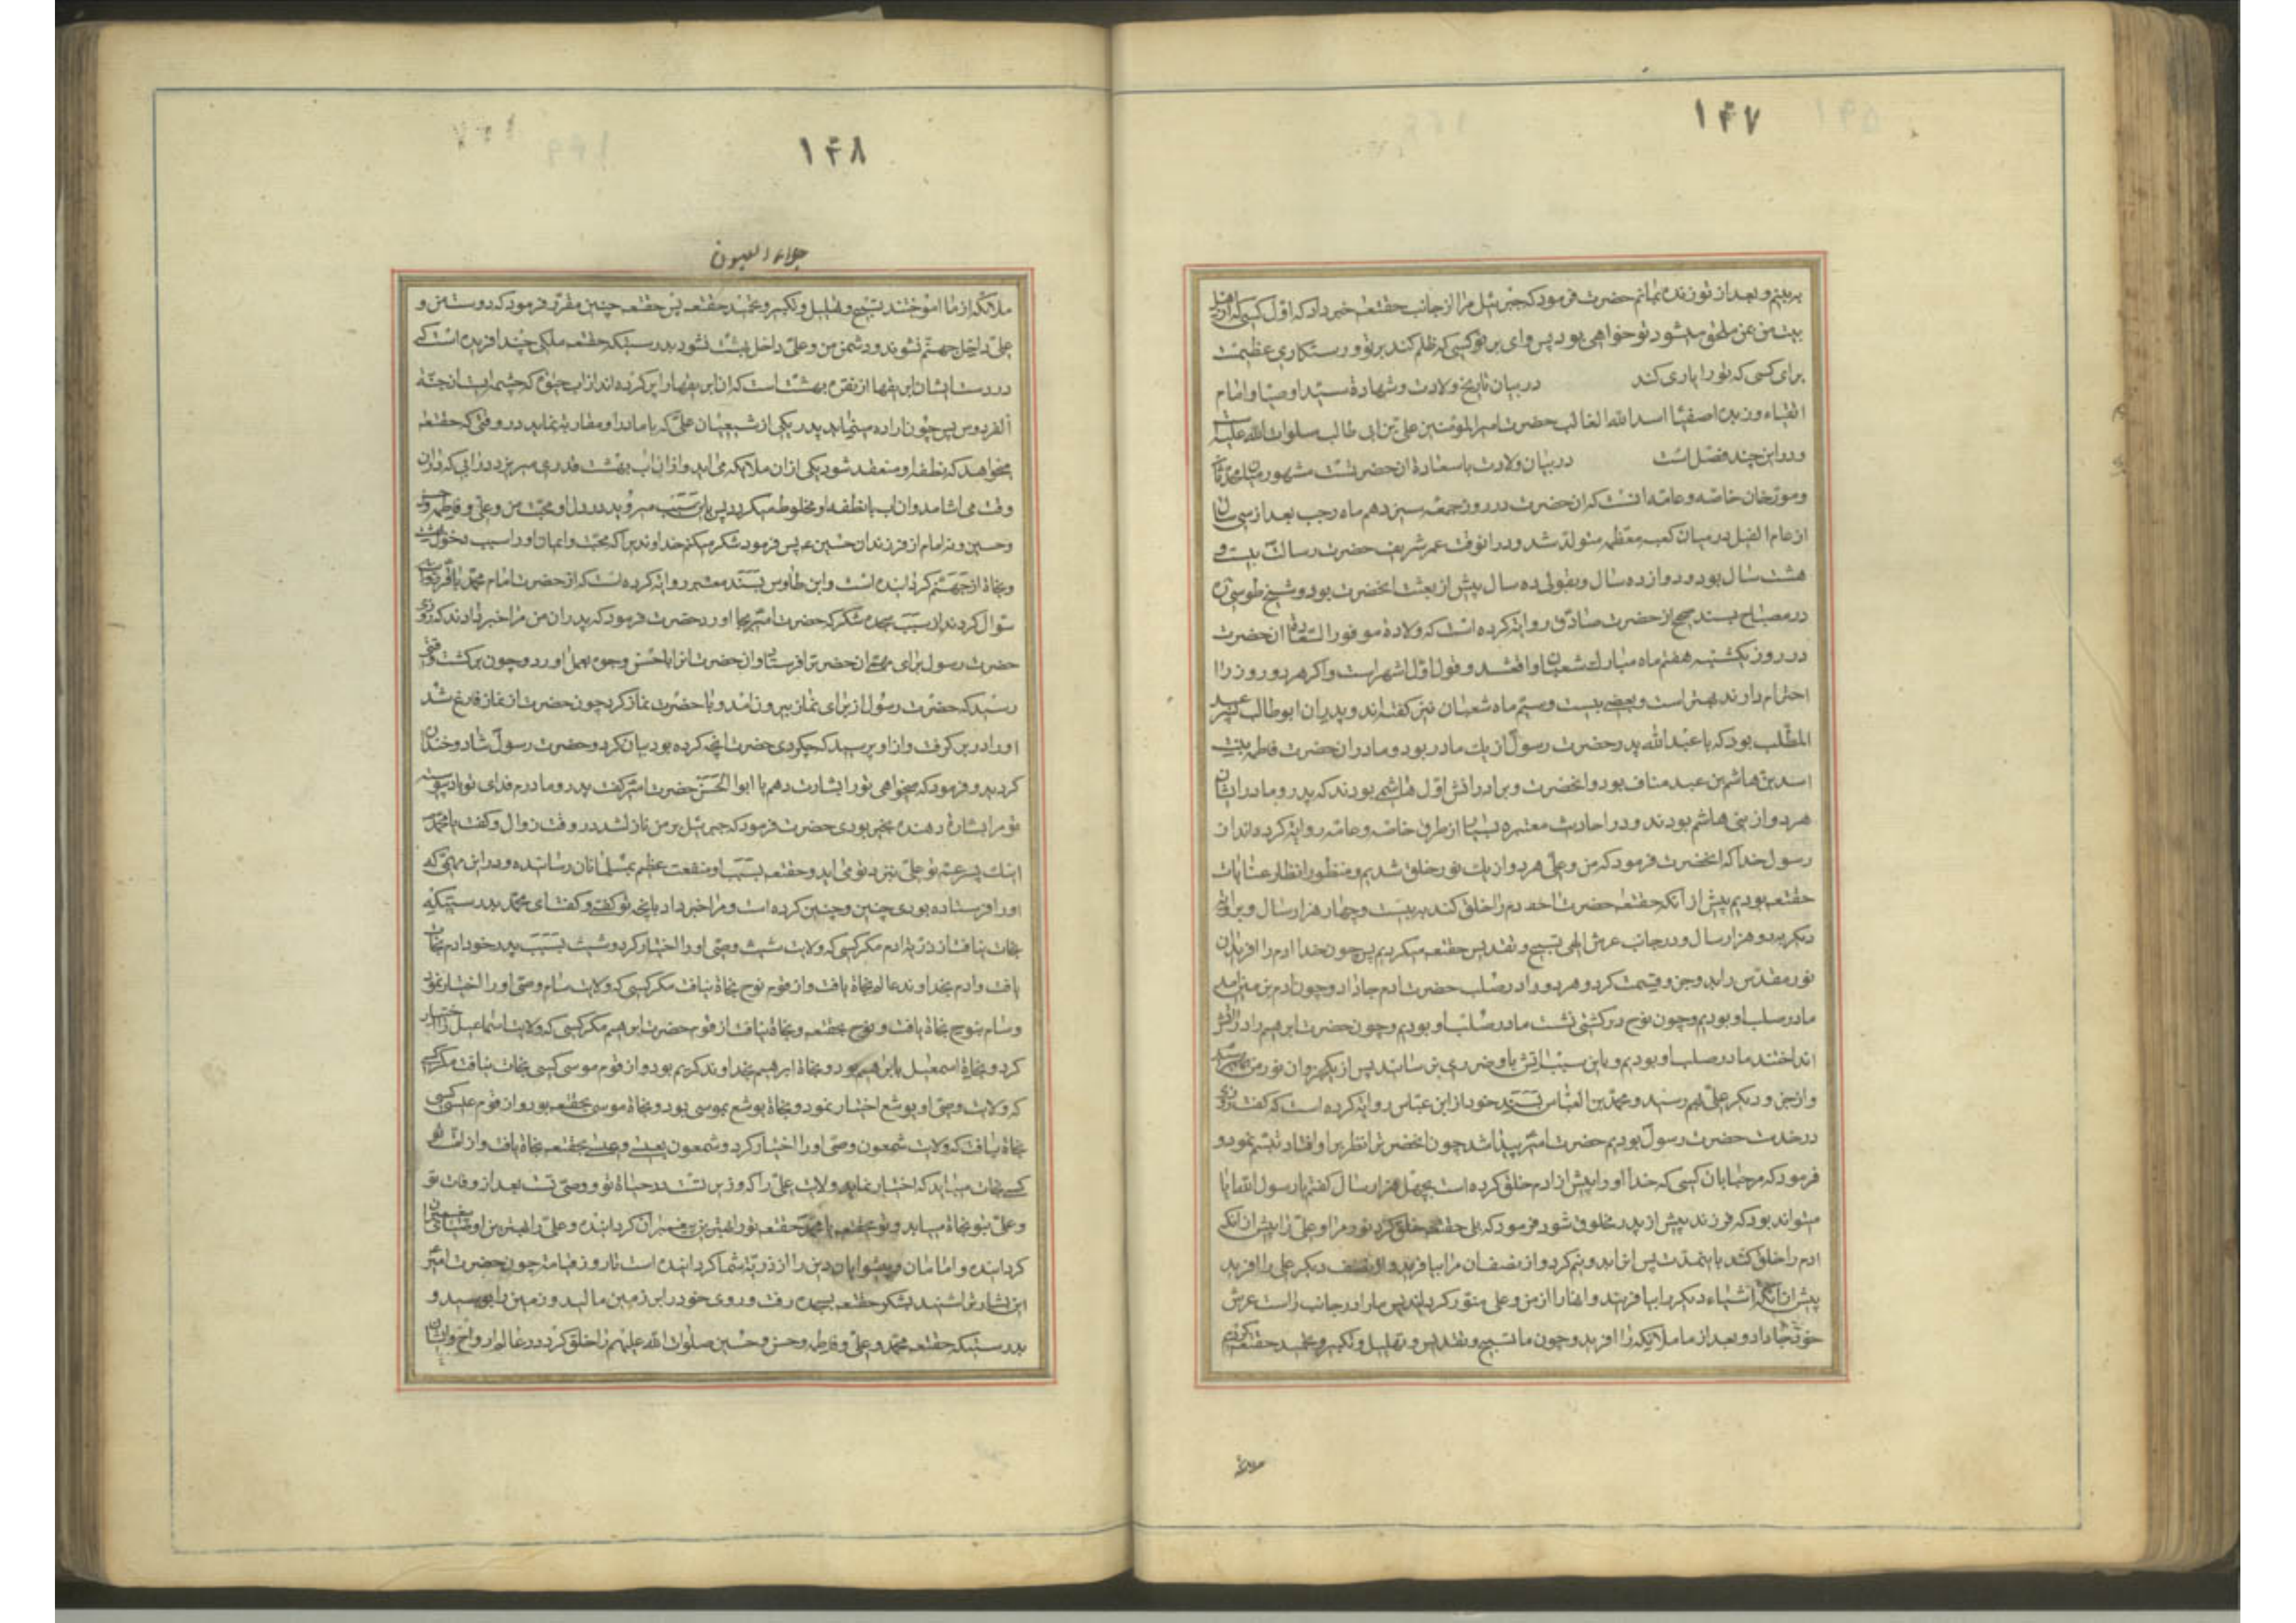 ۱۴۷
ببینم و بعد از تو زنده نمانم حضرت فرمود که جبرئیل مرا از جانب حقتعه خبر داد که اول کسی که از اهل
بیت من بمن ملحق میشود تو خواهی بود پس وای بر تو کسی که ظلم کند بر تو و رستکاری عظیمست
برای کسی که تو را یاری کند در بیان تاریخ ولادت و شهادة سید اوصیا و امام
اتقیاء و زبده اصفیا اسد الله الغالب حضرت امیر المؤمنین علی بن ابی طالب صلوات الله علیه
و در این چند فصل است در بیان ولادت با سعادة ان حضرتست مشهور میان محدثان
و مورخان خاصه و عامه انست که ان حضرت در روز جمعه سیزدهم ماه رجب بعد از سی سال
از عام الفیل در میان کعبه معظمه متولد شد و در انوقت عمر شریف حضرت رسالت بیست و
هشت سال بود و دوازده سال و بقولی ده سال پیش از بعثت انحضرت بود و شیخ طوسی
در مصباح بسند صحیح از حضرت صادق روایة کرده است که ولادة موفور السعادة ان حضرت
در روز یکشنبه هفتم ماه مبارک شعبان واقعشد و قول اول اشهر است و اکر هر دو روز را
احترام دارند بهتر است و بعضی بیست و سیم ماه شعبان نیز کفته اند و پدر ان ابو طالب پسر عبد
المطلب بود که با عبد الله پدر حضرت رسول از یک مادر بود و مادر ان حضرت فاطمه بنت
اسد بن هاشم بن عبد مناف بود و انحضرت و برادرانش اول هاشمی بودند که پدر و مادر ایشان
هر دو از بنی هاشم بودند و در احادیث معتبره بسیار از طرق خاصه و عامه روایة کرده اند از
رسول خدا که انحضرت فرمود که من و علی هر دو از یک نور خلق شدیم و منظور انظار عنایات
حقتعه بودیم پیش از آنکه حقتعه حضرت آدم را خلق کند به بیست و چهار هزار سال و بروایة
دیکر بدو هزار سال و در جانب عرش الهی تسبیح و تقدیس حقتعه میکردیم پس چون خدا ادم را افرید ان
نور مقدس را بدو جزو قسمت کرد و هر دو را در صلب حضرت ادم جا داد و چون ادم بزمین امد
ما در صلب او بودیم و چون نوح در کشتی نشست ما در صلب او بودیم و چون حضرت ابرهیم را در اتش
انداختند ما در صلب او بودیم و باین سبب اتش باو ضرری نرسانید پس از یکجزو ان نور من بهم رسید
و از جزو دیکر علی بهم رسید و محمد بن العباس بسند خود از ابن عباس روایة کرده است که کفت روزی
در خدمت حضرت رسول بودیم حضرت امیر پیدا شد چون انحضرت را نظر بر او افتاد تبسم نمود و
فرمود که مرحبا بان کسی که خدا او را پیش از ادم خلق کرده است بچهل هزار سال کفتم یا رسول الله ایا
میتواند بود که فرزند پیش از پدر مخلوق شود فرمود که بلی حقتعه خلق کرد نور مرا و علی را پیش از انکه
ادم را خلق کند باینمدت پس انرا بدو نیم کرد و از نصف ان مرا بیافرید و از نصف دیکر علی را افرید
پیش از انکه اشیاء دیکر را بیافریند و انها را از من و علی منور کردانید پس ما را در جانب راست عرش
خود جا داد و بعد از ما ملائکه را افرید و چون ما تسبیح و تقدیس و تهلیل و تکبیر و تحمید حقتعه کردیم
ملائکه
۱۴۸
جلاء العیون
ملائکه از ما اموختند تسبیح و تهلیل و تکبیر و تحمید حقتعه پس حقتعه چنین مقرر فرمود که دوست من و
علی داخل جهنم نشوند و دشمن من و علی داخل بهشت نشود بدرستیکه حقتعه ملکی چند افریده است که
در دست ایشان ابریقها از نقره بهشت است که ان ابریقها را پر کرده اند از اب حیوة که چشمه ایست از جنة
الفردوس پس چون اراده مینماید پدر یکی از شیعیان علی که با مادر او مقاربة نماید در وقتی که حقتعه
میخواهد که نطفه او منعقد شود یکی از ان ملائکه می اید و از ان اب بهشت قدری میریزد در ابی که در ان
وقت می اشامد و ان اب با نطفه او مخلوط میکردد پس باین سبب میروید در دل او محبت من و علی و فاطمه و حسن
و حسین و نه امام از فرزندان حسین ع پس فرمود شکر میکنم خداوندیرا که محبت و ایمان او را سبب دخول بهشت
و نجاة از جهنم کردانیده است و ابن طاوس بسند معتبر روایة کرده است که از حضرت امام محمد باقر
سؤال کردند از سبب سجده شکر که حضرت امیر بجا اورد حضرت فرمود که پدران من مرا خبر دادند که روزی
حضرت رسول برای مهمی ان حضرت را فرستاد و ان حضرت انرا باحسن وجوه بعمل اورد و چون برکشت وقتی
رسید که حضرت رسول از برای نماز بیرون امد و با حضرت نماز کرد چون حضرت از نماز فارغ شد
او را در بر کرفت و از او پرسید که چکردی حضرت انچه کرده بود بیان کرد و حضرت رسول شاد و خندان
کردید و فرمود که میخواهی تو را بشارت دهم یا ابو الحسن حضرت امیر کفت پدر و مادرم فدای تو باد پیوسته
تو مرا بشارة دهنده بخیر بودی حضرت فرمود که جبرئیل بر من نازلشد در وقت زوال و کفت یا محمد
اینک پسر عم تو علی نزد تو می اید و حقتعه بسبب او منفعت عظیم بمسلمانان رسانیده و در این مهمی که
او را فرستاده بودی چنین و چنین کرده است و مرا خبر داد بانچه تو کفتی و کفت ای محمد بدرستیکه
نجات نیافت از ذریة ادم مکر کسی که ولایت شیث وصی او را اختیار کرد و شیث بسبب پدر خود ادم نجات
یافت و ادم بخداوند عالم نجاة یافت و از قوم نوح نجاة نیافت مکر کسی که ولایت سام وصی او را اختیار نمود
و سام بنوح نجاة یافت و نوح بحقتعه و نجاة نیافت از قوم حضرت ابرهیم مکر کسی که ولایت اسماعیل را اختیار
کرد و نجاة اسمعیل بابرهیم بود و نجاة ابرهیم بخداوند کریم بود و از قوم موسی کسی نجات نیافت مکر کسی
که ولایت وصی او یوشع اختیار نمود و نجاة یوشع بموسی بود و نجاة موسی بحقتعه بود و از قوم عیسی کسی
نجاة یافت که ولایت شمعون وصی او را اختیار کرد و شمعون بعیسی و عیسی بحقتعه نجاة یافت و از امت تو
کسی نجات میابد که اختیار نماید ولایت علی را که وزیر تست در حیاة تو و وصی تست بعد از وفات تو
و علی بتو نجاة میابد و تو بحقتعه یا محمد حقتعه تو را بهترین پیغمبران کردانیده و علی را بهترین اوصیای پیغمبران
کردانیده و امامان و پیشوایان دین را از ذریة شما کردانیده است تا روز قیامة چون حضرت امیر
این بشارت را شنید بشکر حقتعه بسجده رفت و روی خود را بر زمین مالید و زمین را بوسید و
بدرستیکه حقتعه محمد و علی و فاطمه و حسن و حسین صلوات الله علیهم را خلق کرد در عالم ارواح و ایشان